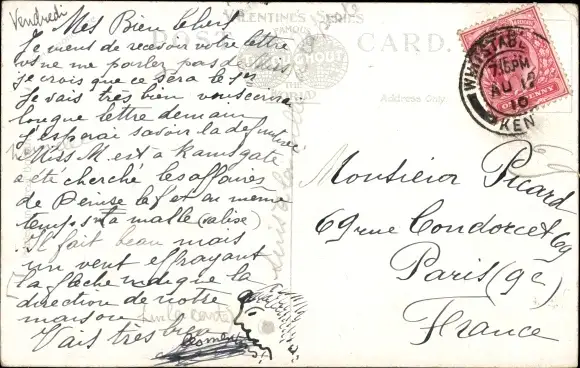 Vendredi
Mes Bien Chers
Je viens de recevoir votre lettre
vs ne me parler pas de
je crois que ce sera le
Je vais très bien vous
longue lettre demain
j'esperai savoir la
Miss M. est a Ramsgate
a été cherché les affaires
de Denise le et au même
temps sa malle (valise)
Il fait beau mais
un vent effrayant
la flèche indique la
direction de notre
maison
Vais très bien
VALENTINE'S SERIES
FAMOUS
THROUGHOUT
THE WORLD
POST CARD.
Address Only.
WHITSTABLE
7.15 PM
AU 12
10
KENT
ONE PENNY
Monsieur Picard
69 rue Condorcet 69
Paris (9e)
France